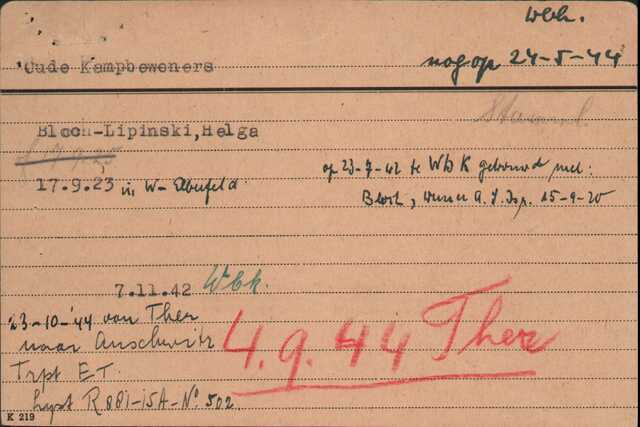 Wbk.
Oude Kampbewoners
nog op 24-5-44
Bloch-Lipinski, Helga
17.9.23 in W-Elberfeld
op 23-7-42 te WbK getrouwd met:
Bloch, Werner A. J. 15-9-20
7.11.42 Wbk.
23-10-44 van Ther
naar Auschwitz
Trpt ET.
Lyst R 881-15A-No 502.
4.9.44 Ther
K 219